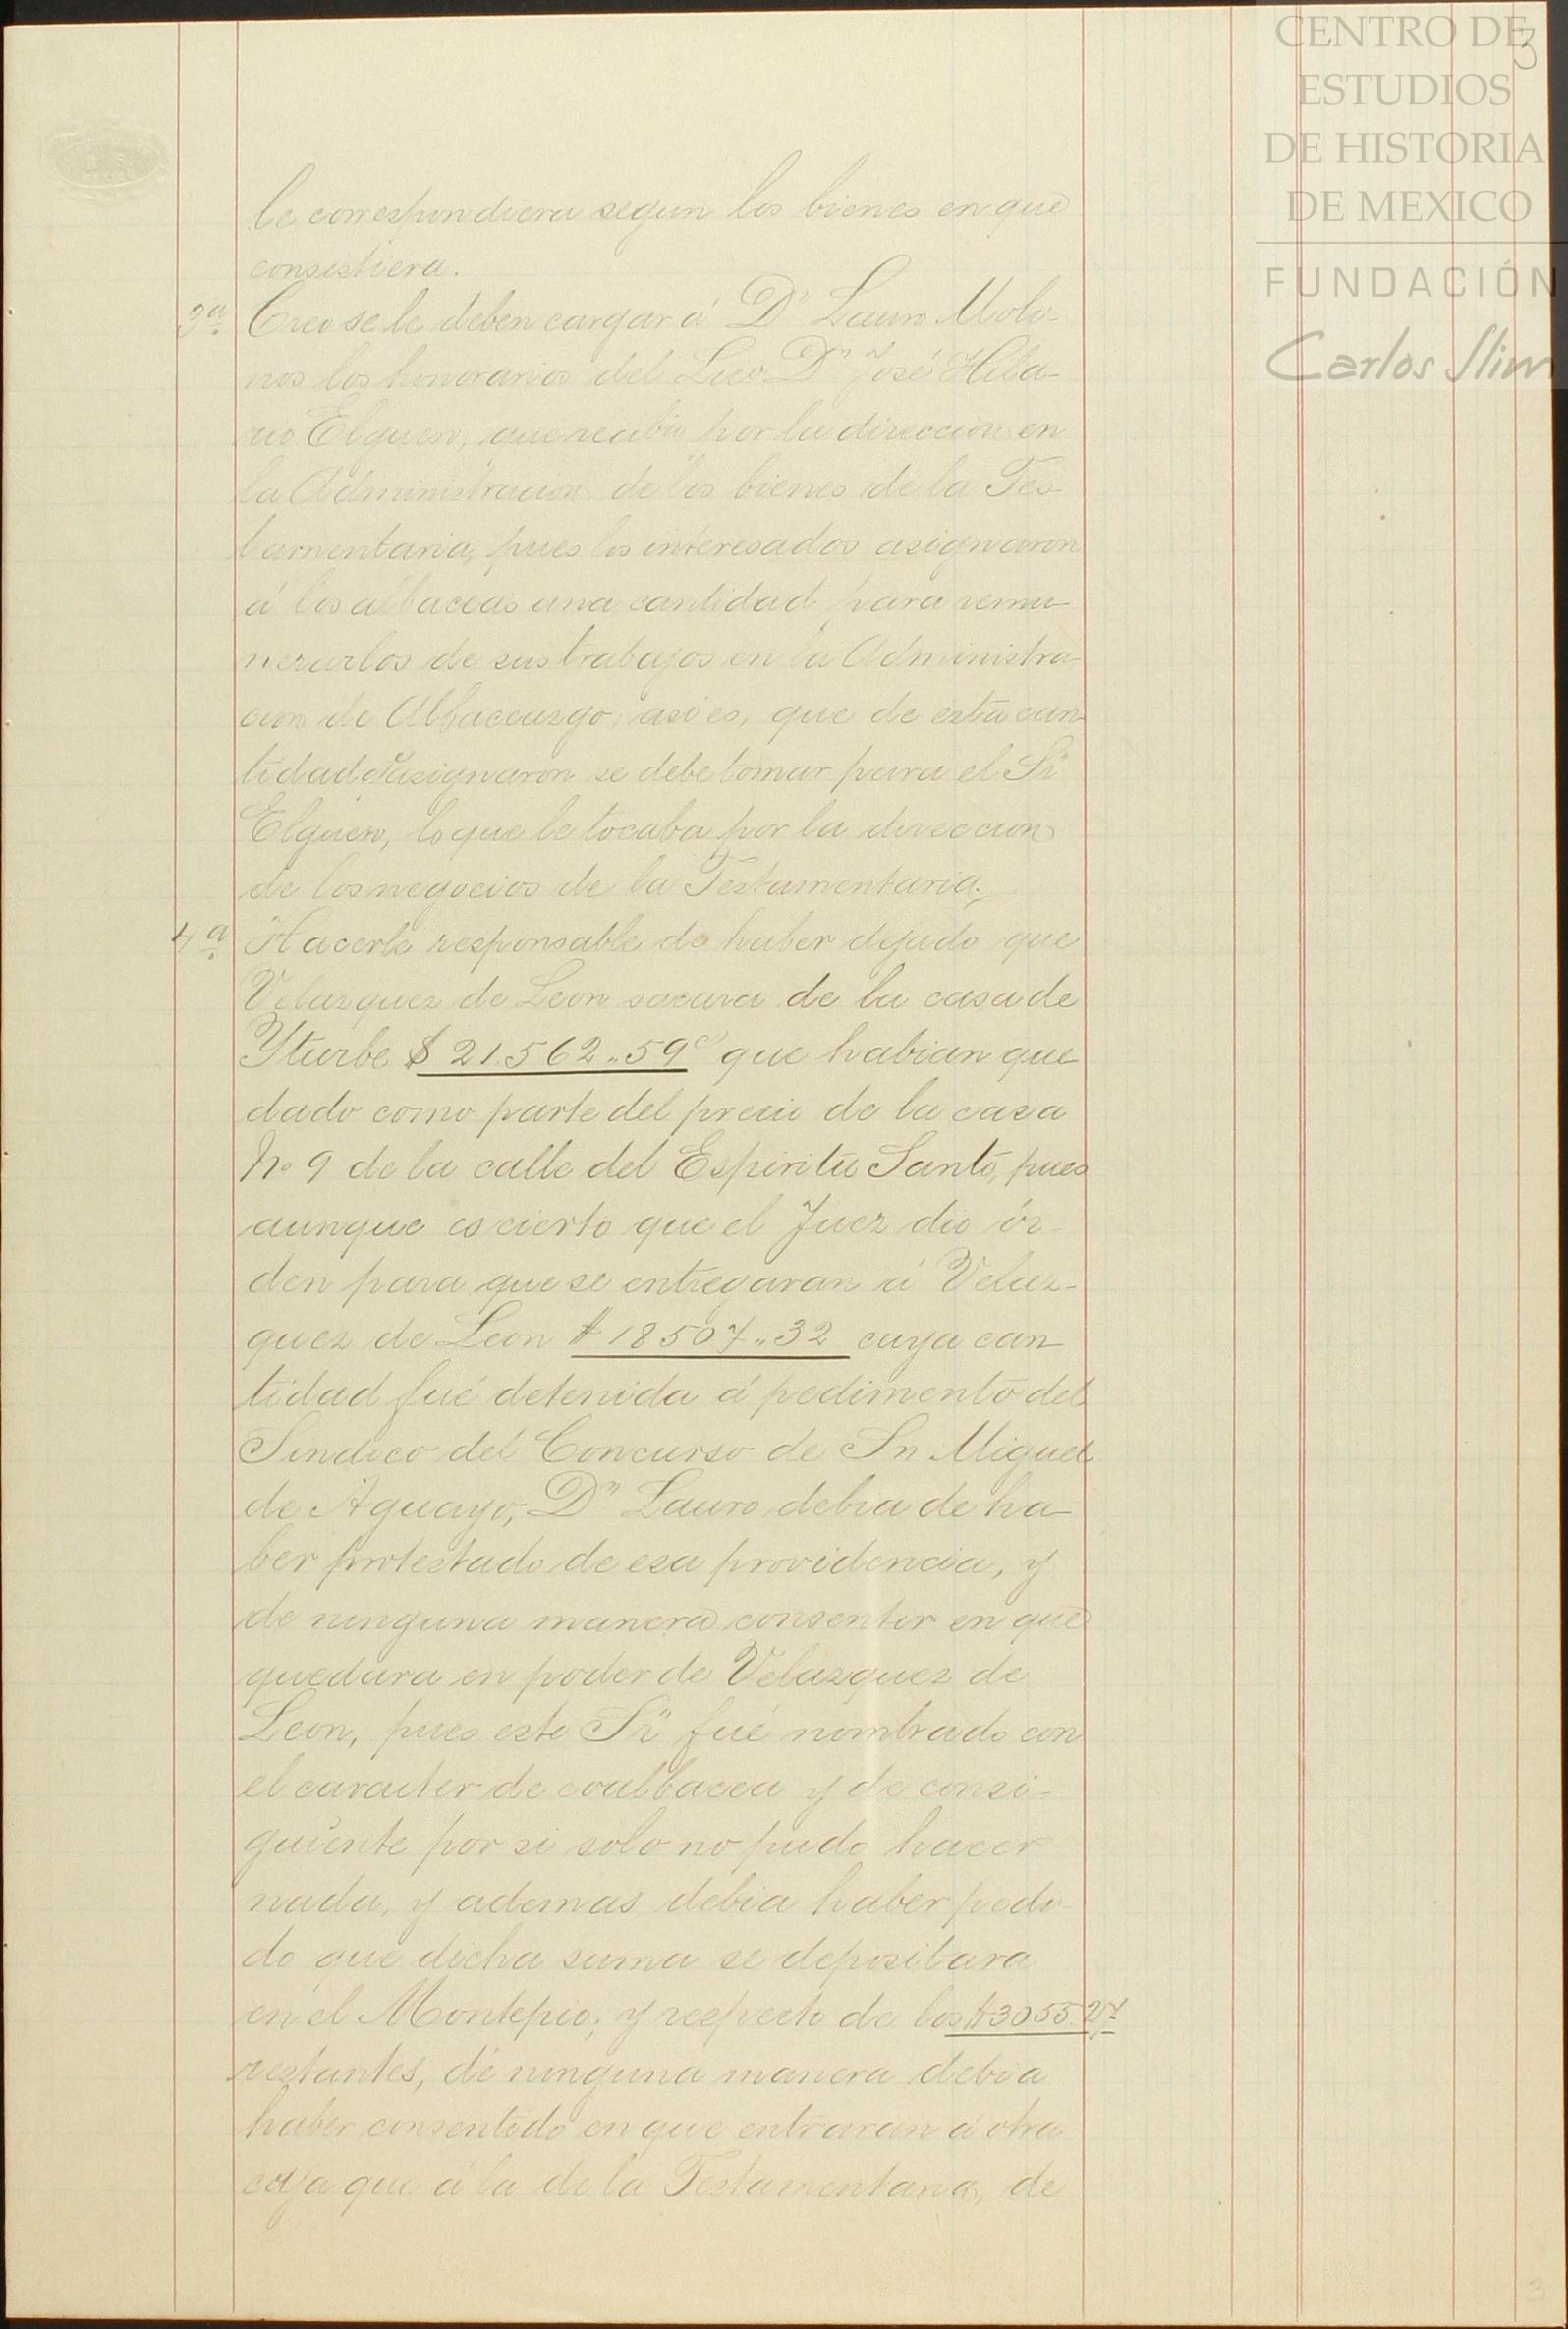 CENTRO DE
ESTUDIOS
DE HISTORIA
DE MEXICO
FUNDACIÓN
Carlos Slim
3
le correspondiera segun los bienes en que
consistiera.
3ª Creo se le deben cargar á Dn Lauro Moli-
nos los honorarios del Lico Dn José Hila-
rio Elguero, que recibio por la direccion en
la Administracion de los bienes de la Tes-
tamentaria, pues los interesados asignaron
á los albaceas una cantidad para remu-
nerarlos de sus trabajos en la Administra-
cion de Albaceazgo: asi es, que de esta can-
tidad q asignaron se debe tomar para el Sr
Elguero, lo que le tocaba por la direccion
de los negocios de la Testamentaria.
4ª Hacerle responsable de haber dejado que
Velazquez de Leon sacara de la casa de
Yturbe $ 21.562.,59 que habian que
dado como parte del precio de la casa
No 9 de la calle del Espiritu Santo, pues
aunque es cierto que el Juez dio ór-
den para que se entregaran á Velaz-
quez de Leon $ 18507.,32 cuya can-
tidad fué detenida á pedimento del
Sindico del Concurso de Sn Miguel
de Aguayo, Dn Lauro debia de ha-
ber protestado de esa providencia, y
de ninguna manera consentir en que
quedara en poder de Velazquez de
Leon, pues este Sr fué nombrado con
el caracter de coalbacea y de consi-
guiente por si solo no pudo hacer
nada, y ademas debia haber pedi-
do que dicha suma se depositara
en el Montepio; y respecto de los $3055.27
restantes, de ninguna manera debia
haber consentido en que entraran á otra
caja que á la de la Testamentaria, de
3